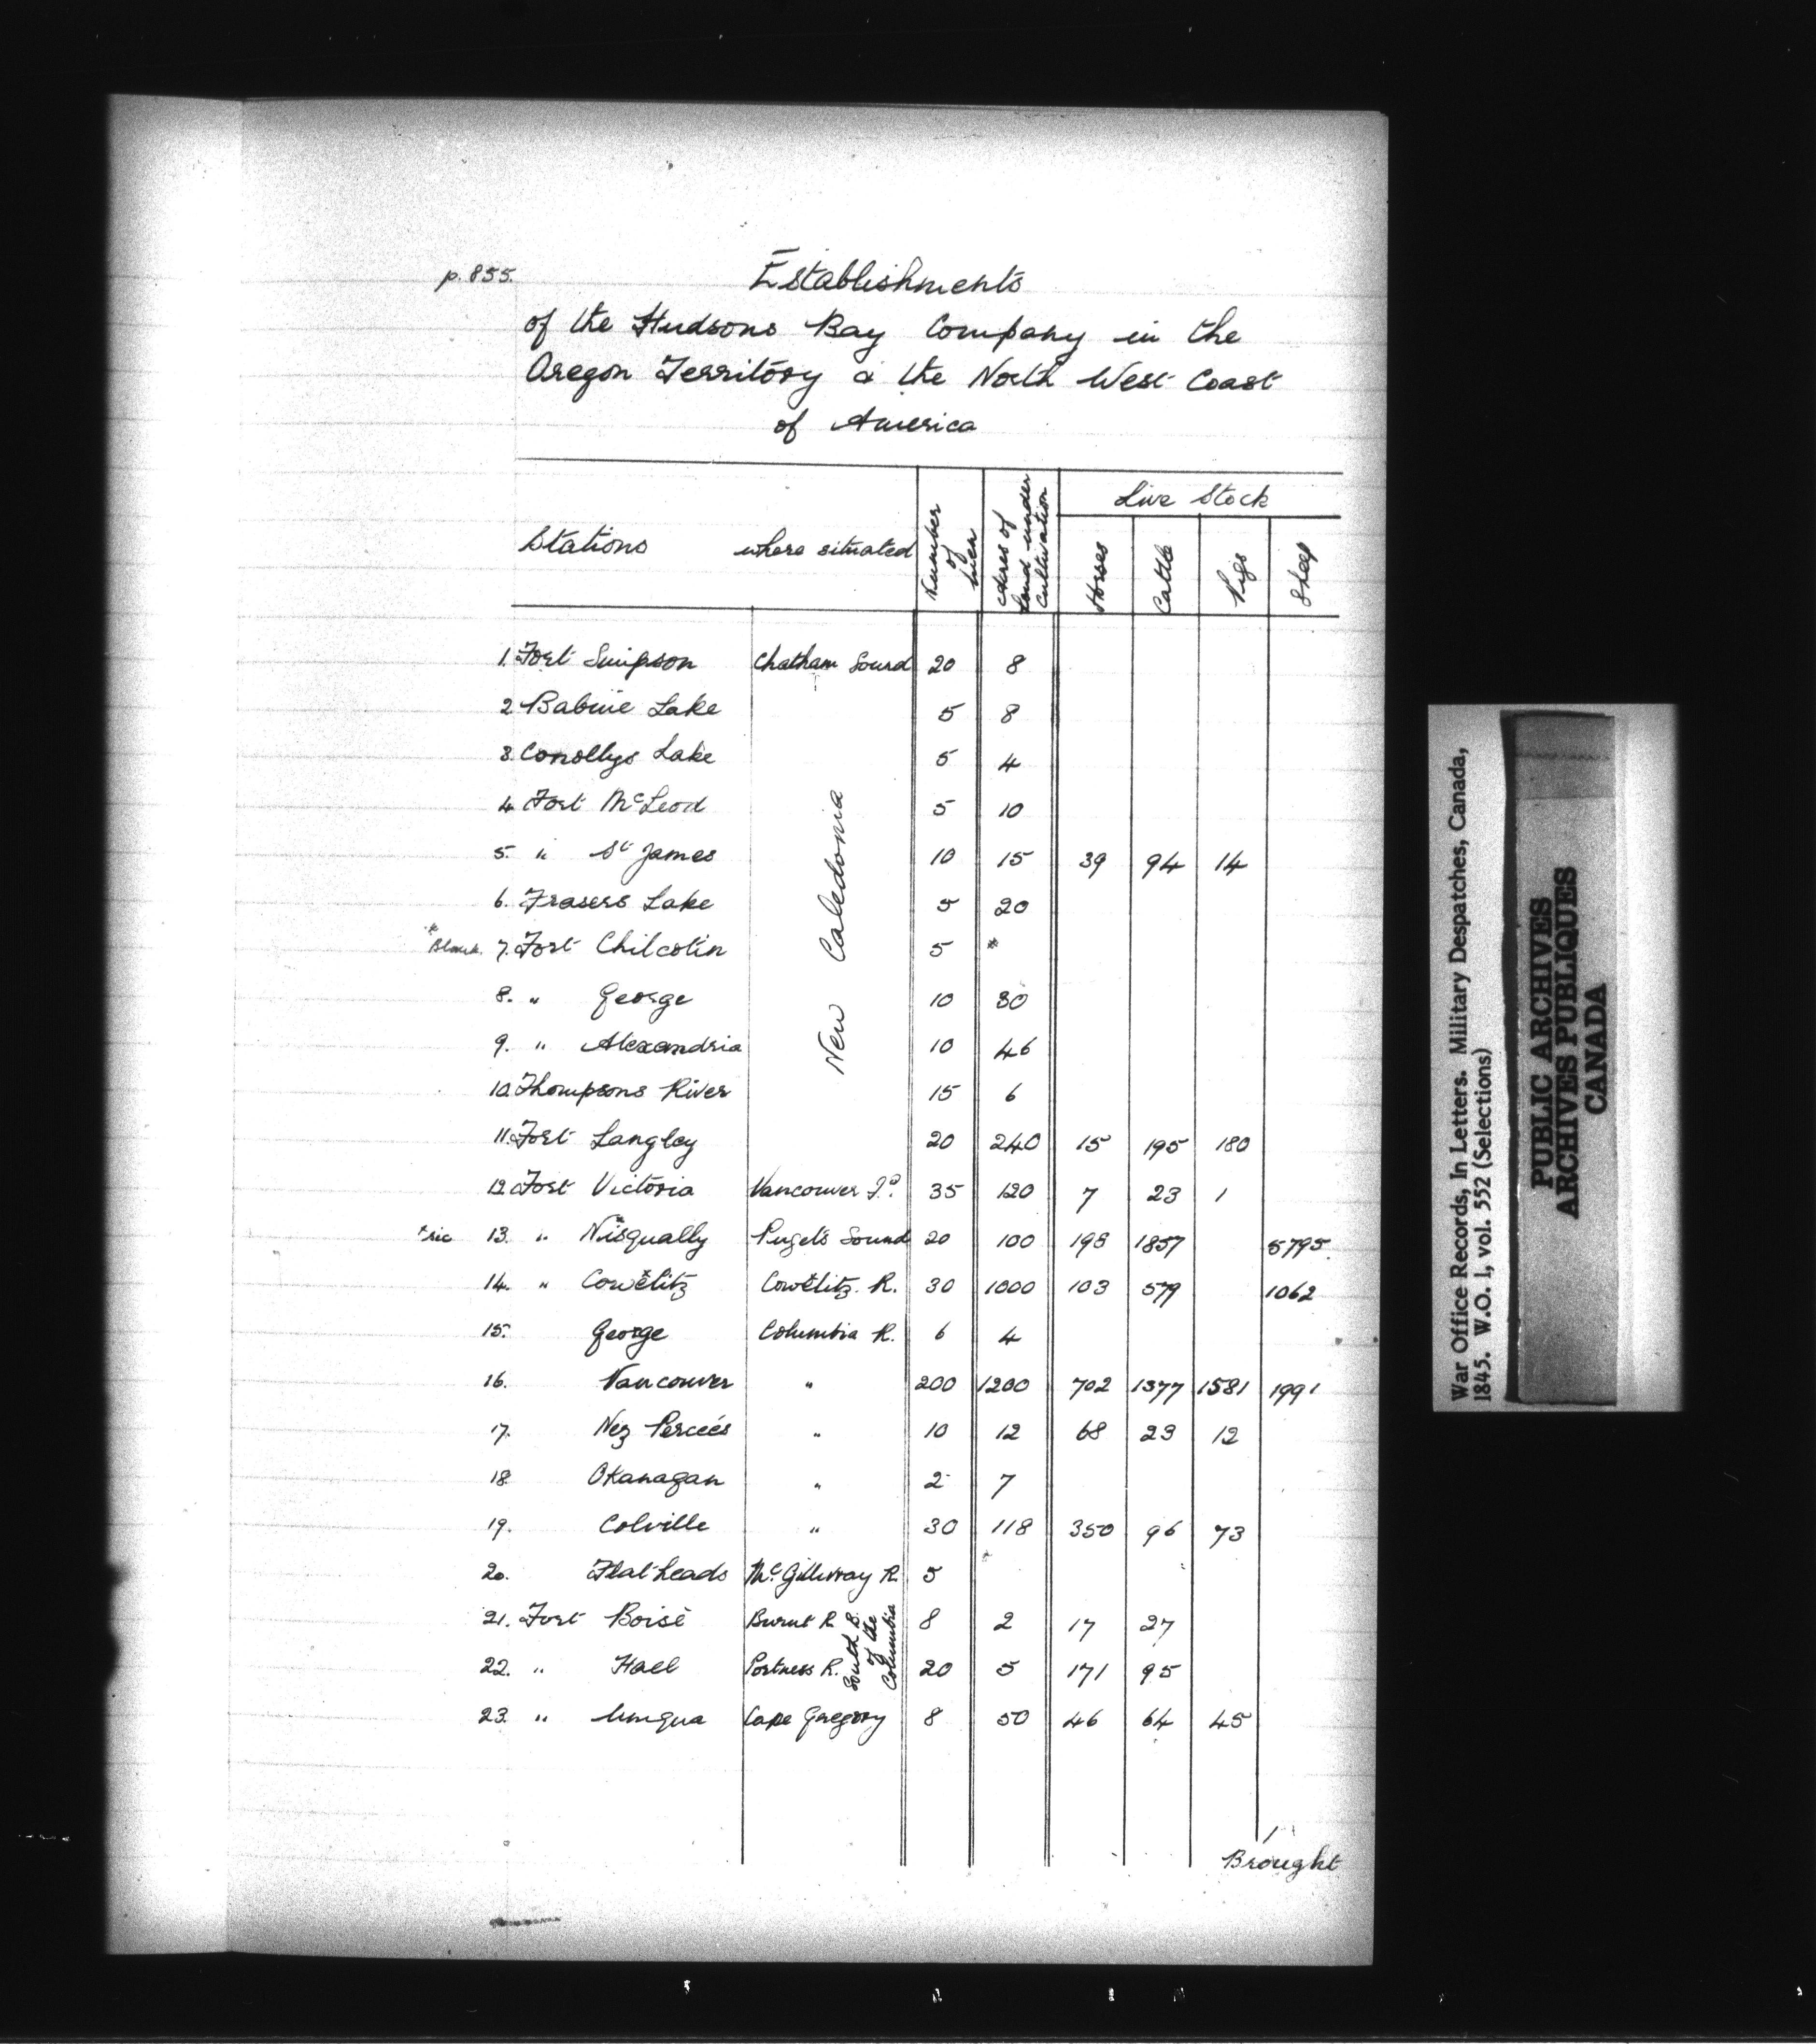 p. 855.
Establishments
of the Hudsons Bay Company in the
Oregon Territory & the North West Coast
of America
Stations where situated Number of men Acres of land under Cultivation Live Stock
Horses Cattle Pigs Sheep
1. Fort Simpson Chatham Sound 20 8
2 Babine Lake 5 8
3. Conollys Lake 5 4
4. Fort McLeod 5 10
5. " St James 10 15 39 94 14
6. Frasers Lake 5 20
New Caledonia
* Blank. 7. Fort Chilcotin 5 *
8. " George 10 30
9. " Alexandria 10 46
10. Thompsons River 15 6
11. Fort Langley 20 240 15 195 180
12. Fort Victoria Vancouver Id. 35 120 7 23 1
*sic 13. " Nisqually Pugets Sound 20 100 198 1857 5795.
14. " Cowelitz Cowelitz R. 30 1000 103 579 1062
15. George Columbia R. 6 4
16. Vancouver " 200 1200 702 1377 1581 1991
17. Nez Percées " 10 12 68 23 12
18. Okanagan " 2 7
19. Colville " 30 118 350 96 73
20. Flatheads McGillivray R. 5
21. Fort Boisé Burnt R. 8 2 17 27
South B. of the Columbia
22. " Hall Portness R. 20 5 171 95
23. " Umqua Cape Gregory 8 50 46 64 45
Brought
War Office Records, In Letters. Military Despatches, Canada,
1845. W.O. 1, vol. 552 (Selections)
PUBLIC ARCHIVES
ARCHIVES PUBLIQUES
CANADA